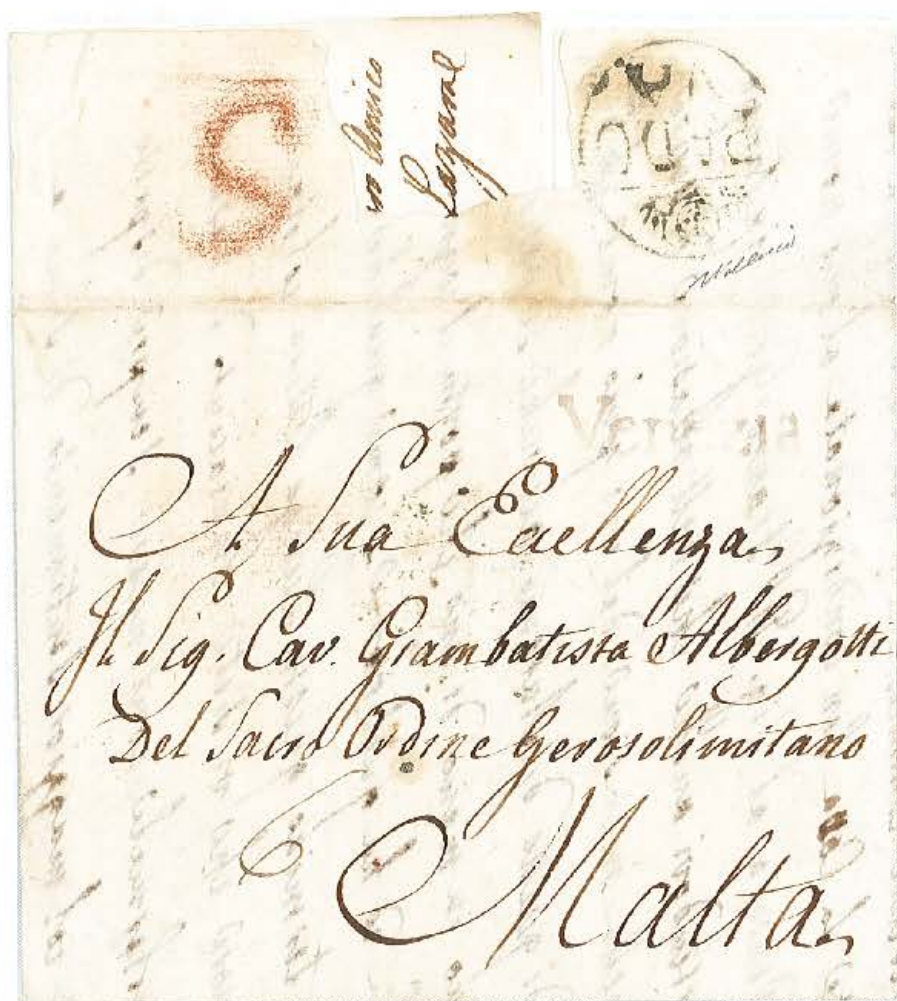 S
Amico
A Sua Eccellenza
Il Sig. Cav. Giambatista Albergotti
Del Sacro Ordine Gerosolimitano
6
Malta